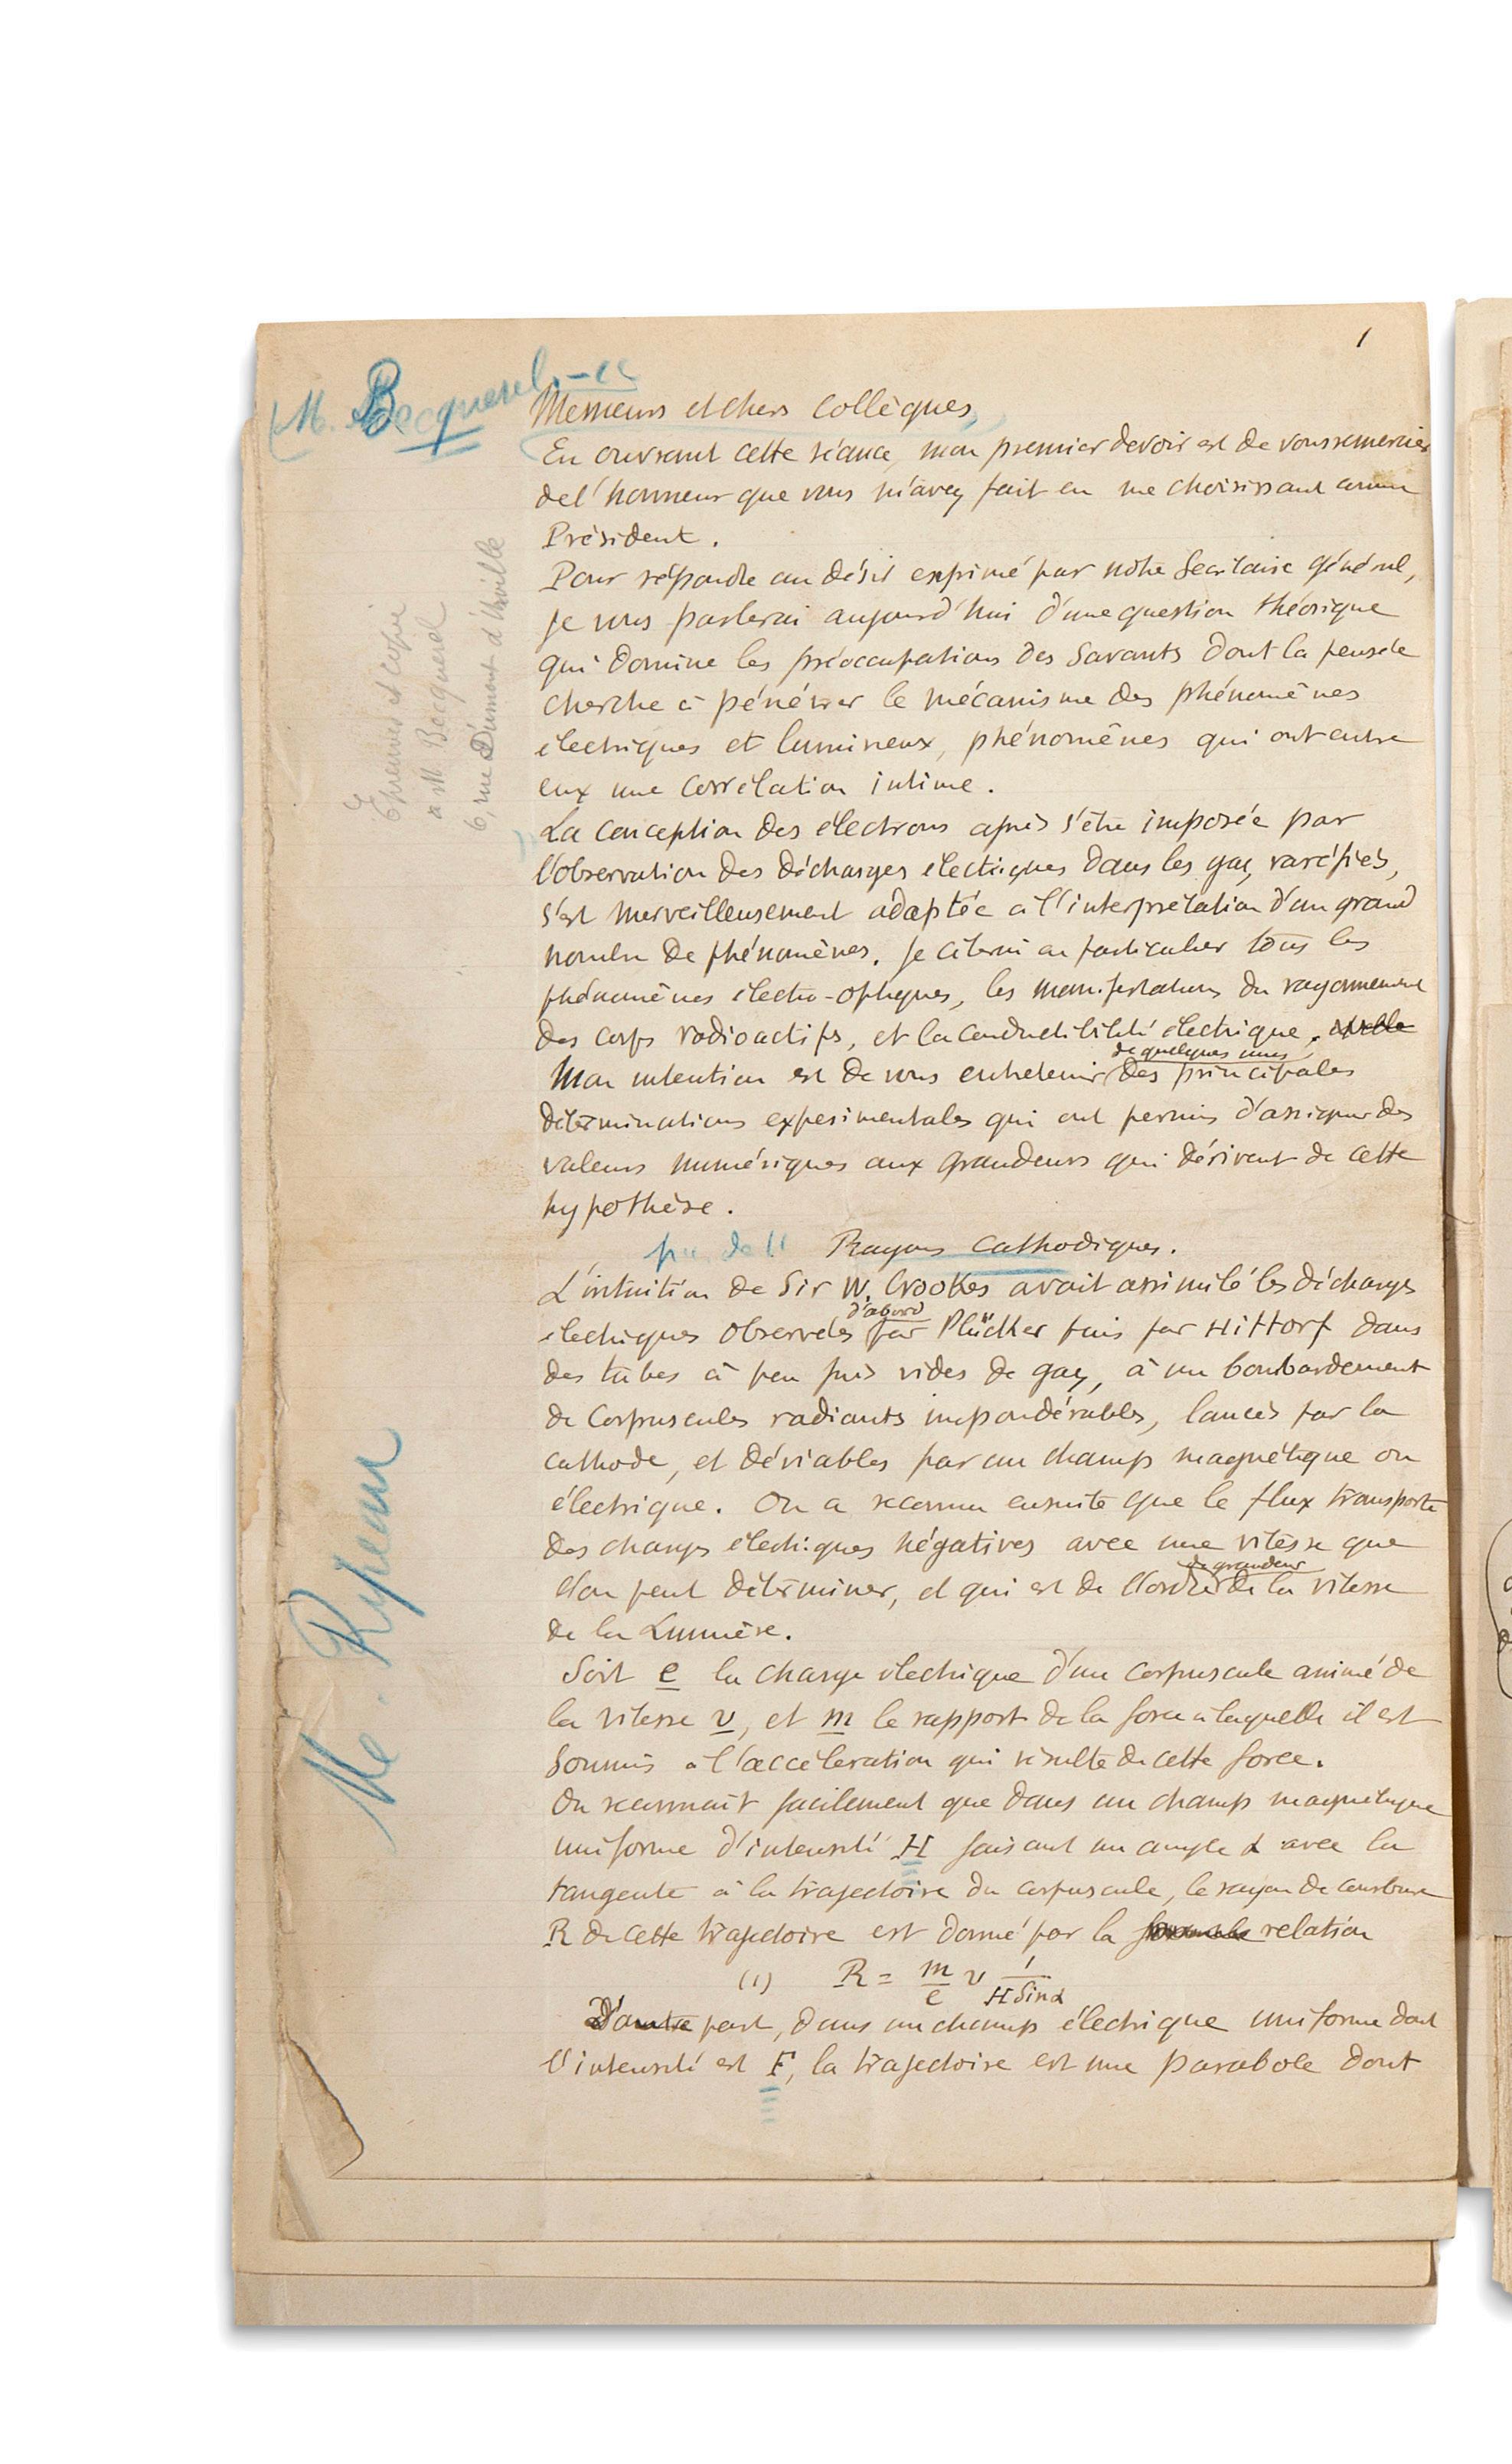 1
M. Becquerel
Messieurs et chers Collègues,
En ouvrant cette séance, mon premier devoir est de vous remercier
de l'honneur que vous m'avez fait en me choisissant comme
Président.
Pour répondre au désir exprimé par notre Secrétaire général,
je vous parlerai aujourd'hui d'une question théorique
qui domine les préoccupations des Savants dont la pensée
cherche à pénétrer le mécanisme des phénomènes
électriques et lumineux, phénomènes qui ont entre
eux une Corrélation intime.
La Conception des électrons après s'être imposée par
l'observation des décharges électriques dans les gaz raréfiés,
s'est merveilleusement adaptée à l'interprétation d'un grand
nombre de phénomènes. Je citerai en particulier tous les
phénomènes électro-optiques, les manifestations du rayonnement
des corps radioactifs, et la conductibilité électrique.
de quelques unes
Mon intention est de vous entretenir des principales
déterminations expérimentales qui ont permis d'assigner des
valeurs numériques aux grandeurs qui dérivent de cette
hypothèse.
Rayons Cathodiques.
L'intuition de Sir W. Crookes avait assimilé les décharges
d'abord
électriques observées par Plücker puis par Hittorf dans
des tubes à peu près vides de gaz, à un bombardement
de Corpuscules radiants impondérables, lancés par la
cathode, et déviables par un champ magnétique ou
électrique. On a reconnu ensuite que le flux transporte
des charges électriques négatives avec une vitesse que
de grandeur
l'on peut déterminer, et qui est de l'ordre de la vitesse
de la Lumière.
Soit e la charge électrique d'un corpuscule animé de
la vitesse v, et m le rapport de la force à laquelle il est
soumis à l'accélération qui résulte de cette force.
On reconnaît facilement que dans un champ magnétique
uniforme d'intensité H faisant un angle α avec la
tangente à la trajectoire du corpuscule, le rayon de courbure
R de cette trajectoire est donné par la formule relation
(1) R = m/e v 1/H Sin α
D'autre part, dans un champ électrique uniforme dont
l'intensité est F, la trajectoire est une parabole dont
Epreuves et copie
à M. Becquerel
6, rue Dumont d'Urville